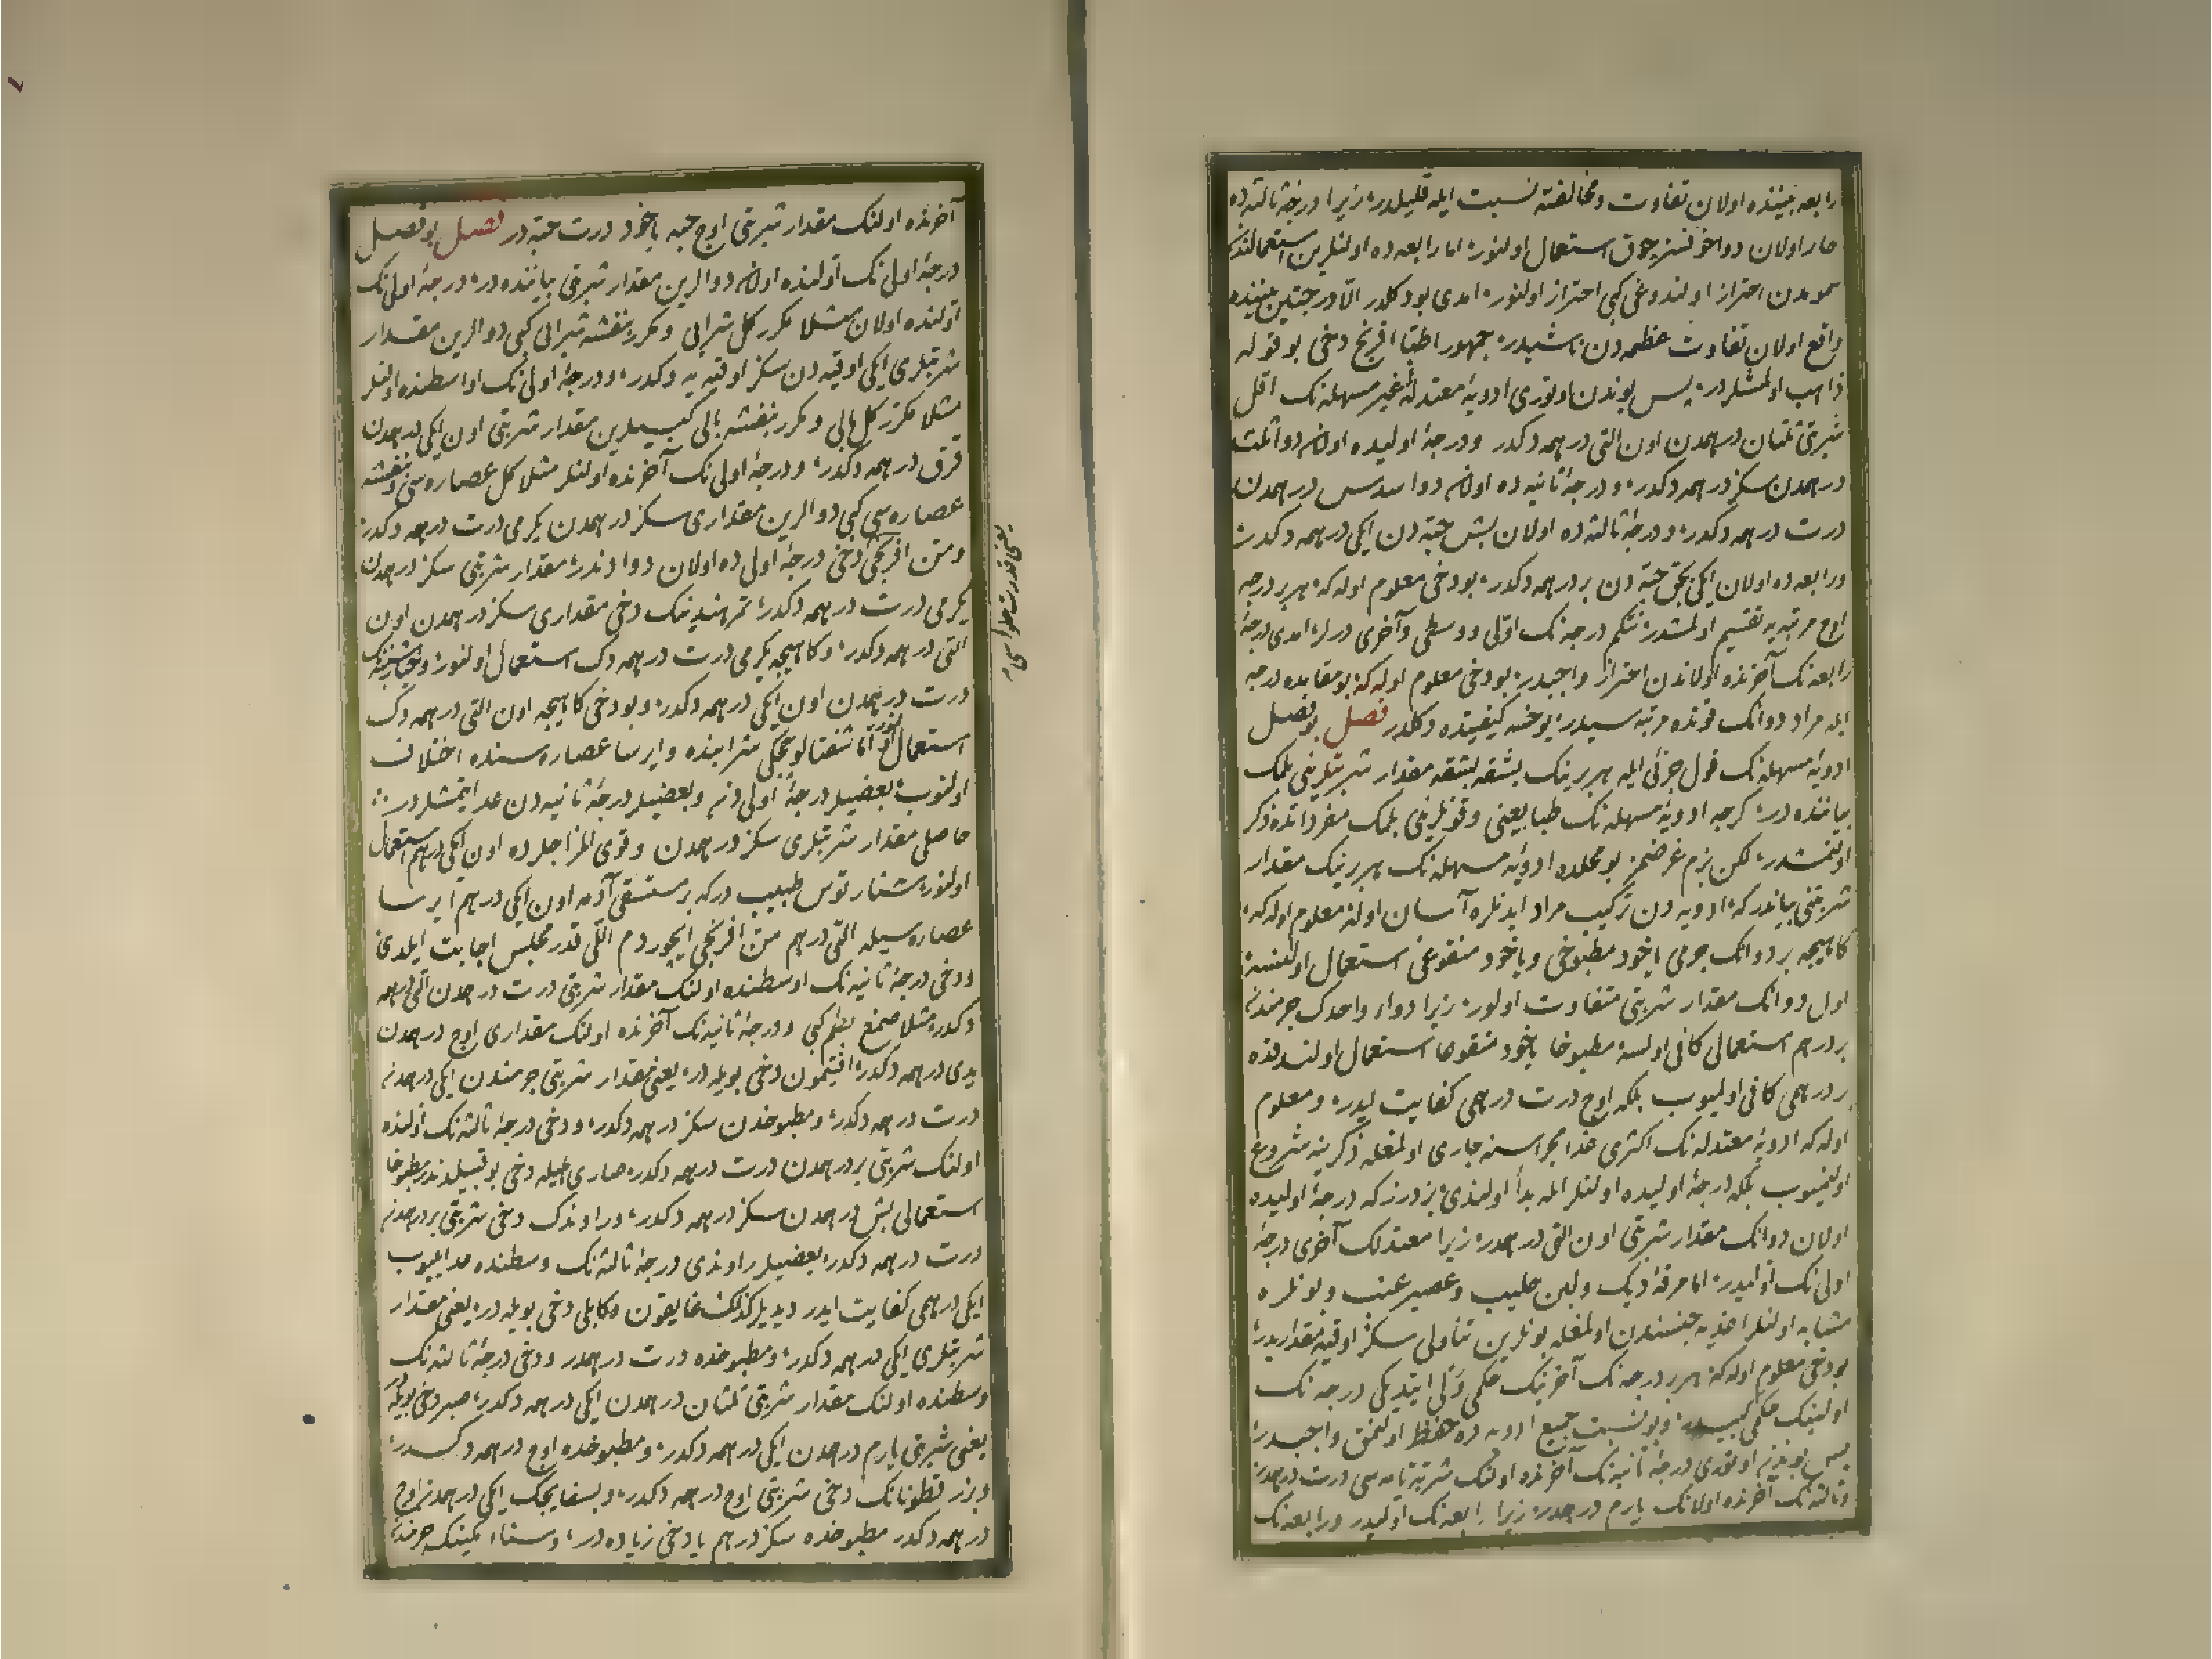 رابعه بیننده اولان تفاوت و مخالفته نسبت ایله قلیلدر زیرا درجۀ ثالثه ده
حار اولان دوا خوفسز چوق استعمال اولنور اما رابعه ده اولنلرین استعمالندن
سمومدن احتراز اولندوغی کبی احتراز اولنور امدی بو دکلدر الا درجتین بیننده
واقع اولان تفاوت عظمه دن ناشیدر جمهور اطبا افرنج دخی بو قوله
ذاهب اولمشلردر پس بوندن اوتوری ادویۀ معتدلۀ غیر مسهله نک اقل
شربتی ثلثان درهمدن اون التی درهمه دکدر و درجۀ اولیده اولان دوا ثلث
درهمدن سکز درهمه دکدر و درجۀ ثانیه ده اولان دوا سدس درهمدن
درت درهمه دکدر و درجۀ ثالثه ده اولان بش حبه دن ایکی درهمه دکدر
و رابعه ده اولان ایکی بچق حبه دن بر درهمه دکدر بو دخی معلوم اوله که هر بر درجه
اوچ مرتبه یه تقسیم اولمشدر نتکم درجه نک اولی و وسطی و آخری درلر امدی درجۀ
رابعه نک آخرنده اولاندن احتراز واجبدر بو دخی معلوم اوله که بو مقامده درجه
ایله مراد دوانک قوتده مرتبه سیدر یوخسه کیفیتده دکلدر فصل بو فصل
ادویۀ مسهله نک قول جزئی ایله هر برینک بشقه بشقه مقدار شربتلرینی بلمک
بیاننده در کرچه ادویۀ مسهله نک طبایعینی و قوتلرینی بلمک مفرداتده ذکر
اولنمشدر لکن بزم غرضمز بو محلده ادویۀ مسهله نک هر برینک مقدار
شربتنی بیاندر که ادویه دن ترکیب مراد ایدنلره آسان اوله معلوم اوله که
کاهیجه بر دوانک جرمی یاخود مطبوخی و یاخود منقوعی استعمال اولنسه
اول دوانک مقدار شربتی متفاوت اولور زیرا دواء واحدک جرمندن
بر درهم استعمالی کافی اولسه مطبوخا یاخود منقوعا استعمال اولندقده
بر درهمی کافی اولمیوب بلکه اوچ درت درهمی کفایت ایدر و معلوم
اوله که ادویۀ معتدله نک اکثری غذا مجراسنه جاری اولمغله ذکرینه شروع
اولنمیوب بلکه درجۀ اولیده اولنلر ایله بدأ اولندی بز درز که درجۀ اولیده
اولان دوانک مقدار شربتی اون التی درهمدر زیرا معتدلک آخری درجۀ
اولی نک اولیدر اما مرقۀ دیک ولبن حلیب و عصیر عنب و بونلره
مشابه اولنلر اغذیه جنسندن اولمغله بونلرین تناولی سکز اوقیه مقداریدر
بو دخی معلوم اوله که هر بر درجه نک آخرینک حکمی ولی ایتدیکی درجه نک
اولینک حکمی کبیدر و بو نسبت جمیع ادویه ده حفظ اولنمق واجبدر
پس بوندن اوتوری درجۀ ثانیه نک آخرنده اولنک شربت تامه سی درت درهمدر
و ثالثه نک آخرنده اولانک یارم درهمدر زیرا رابعه نک اولیدر و رابعه نک
آخرنده اولنک مقدار شربتی اوچ حبه یاخود درت حبه در فصل بو فصل
درجۀ اولی نک اولنده اولان دوالرین مقدار شربتی بیاننده در درجۀ اولی نک
اولنده اولان مثلا مکرر کل شرابی و مکرر بنفشه شرابی کبی دوالرین مقدار
شربتلری ایکی اوقیه دن سکز اوقیه یه دکدر و درجۀ اولی نک اواسطنده اولنلر
مثلا مکرر کل بالی و مکرر بنفشه بالی کبیلرین مقدار شربتی اون ایکی درهمدن
قرق درهمه دکدر و درجۀ اولی نک آخرنده اولنلر مثلا کل عصاره سی و بنفشه
عصاره سی کبی دوالرین مقداری سکز درهمدن یکرمی درت درهمه دکدر
و من افرنجی دخی درجۀ اولی ده اولان دوادندر مقدار شربتی سکز درهمدن
یکرمی درت درهمه دکدر تمر هندینک دخی مقداری سکز درهمدن اون
التی درهمه دکدر و کاهیجه یکرمی درت درهمه دک استعمال اولنور
درت درهمدن اون ایکی درهمه دکدر و بو دخی کاهیجه اون التی درهمه دک
استعمال اولنور اما شفتالو چچکی شرابنده و ایرسا عصاره سنده اختلاف
اولنوب بعضیلر درجۀ اولی دن و بعضیلر درجۀ ثانیه دن عد ایتمشلردر
حاصلی مقدار شربتلری سکز درهمدن و قوی المزاجلرده اون ایکی درهم استعمال
اولنور طبیب درکه بر مستسقی آدمه اون ایکی درهم ایرسا
عصاره سیله التی درهم من افرنجی ایچوردم اللی قدر مجلس اجابت ایلدی
و دخی درجۀ ثانیه نک اوسطنده اولنک مقدار شربتی درت درهمدن التی درهمه
دکدر مثلا صمغ بطم کبی و درجۀ ثانیه نک آخرنده اولنک مقداری اوچ درهمدن
یدی درهمه دکدر افتیمون دخی بویله در یعنی مقدار شربتی جرمندن ایکی درهمدن
درت درهمه دکدر و مطبوخندن سکز درهمه دکدر و دخی درجۀ ثالثه نک اولنده
اولنک شربتی بر درهمدن درت درهمه دکدر صاری هلیله دخی بو قبیلدندر مطبوخا
استعمالی بش درهمدن سکز درهمه دکدر و راوندک دخی شربتی بر درهمدن
درت درهمه دکدر بعضیلر راوندی درجۀ ثالثه نک وسطنده عد ایلیوب
ایکی درهمی کفایت ایدر دیدیلر کذلک غاریقون و کابلی دخی بویله در یعنی مقدار
شربتلری ایکی درهمه دکدر و مطبوخده درت درهمدر و دخی درجۀ ثالثه نک
وسطنده اولنک مقدار شربتی ثلثان درهمدن ایکی درهمه دکدر صبر دخی بویله در
یعنی شربتی یارم درهمدن ایکی درهمه دکدر و مطبوخده اوچ درهمه دکدر
و بزر قطونانک دخی شربتی اوچ درهمه دکدر و بسفایجک ایکی درهمدن اوچ
درهمه دکدر مطبوخده سکز درهم یا دخی زیاده در و سناء مکینک جرمندن
یعنی قدرت حلواسی